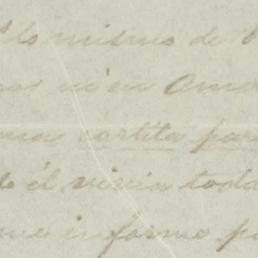 lo mismo de
ni en Amo
una cartita par
él vivia toda
me informe p